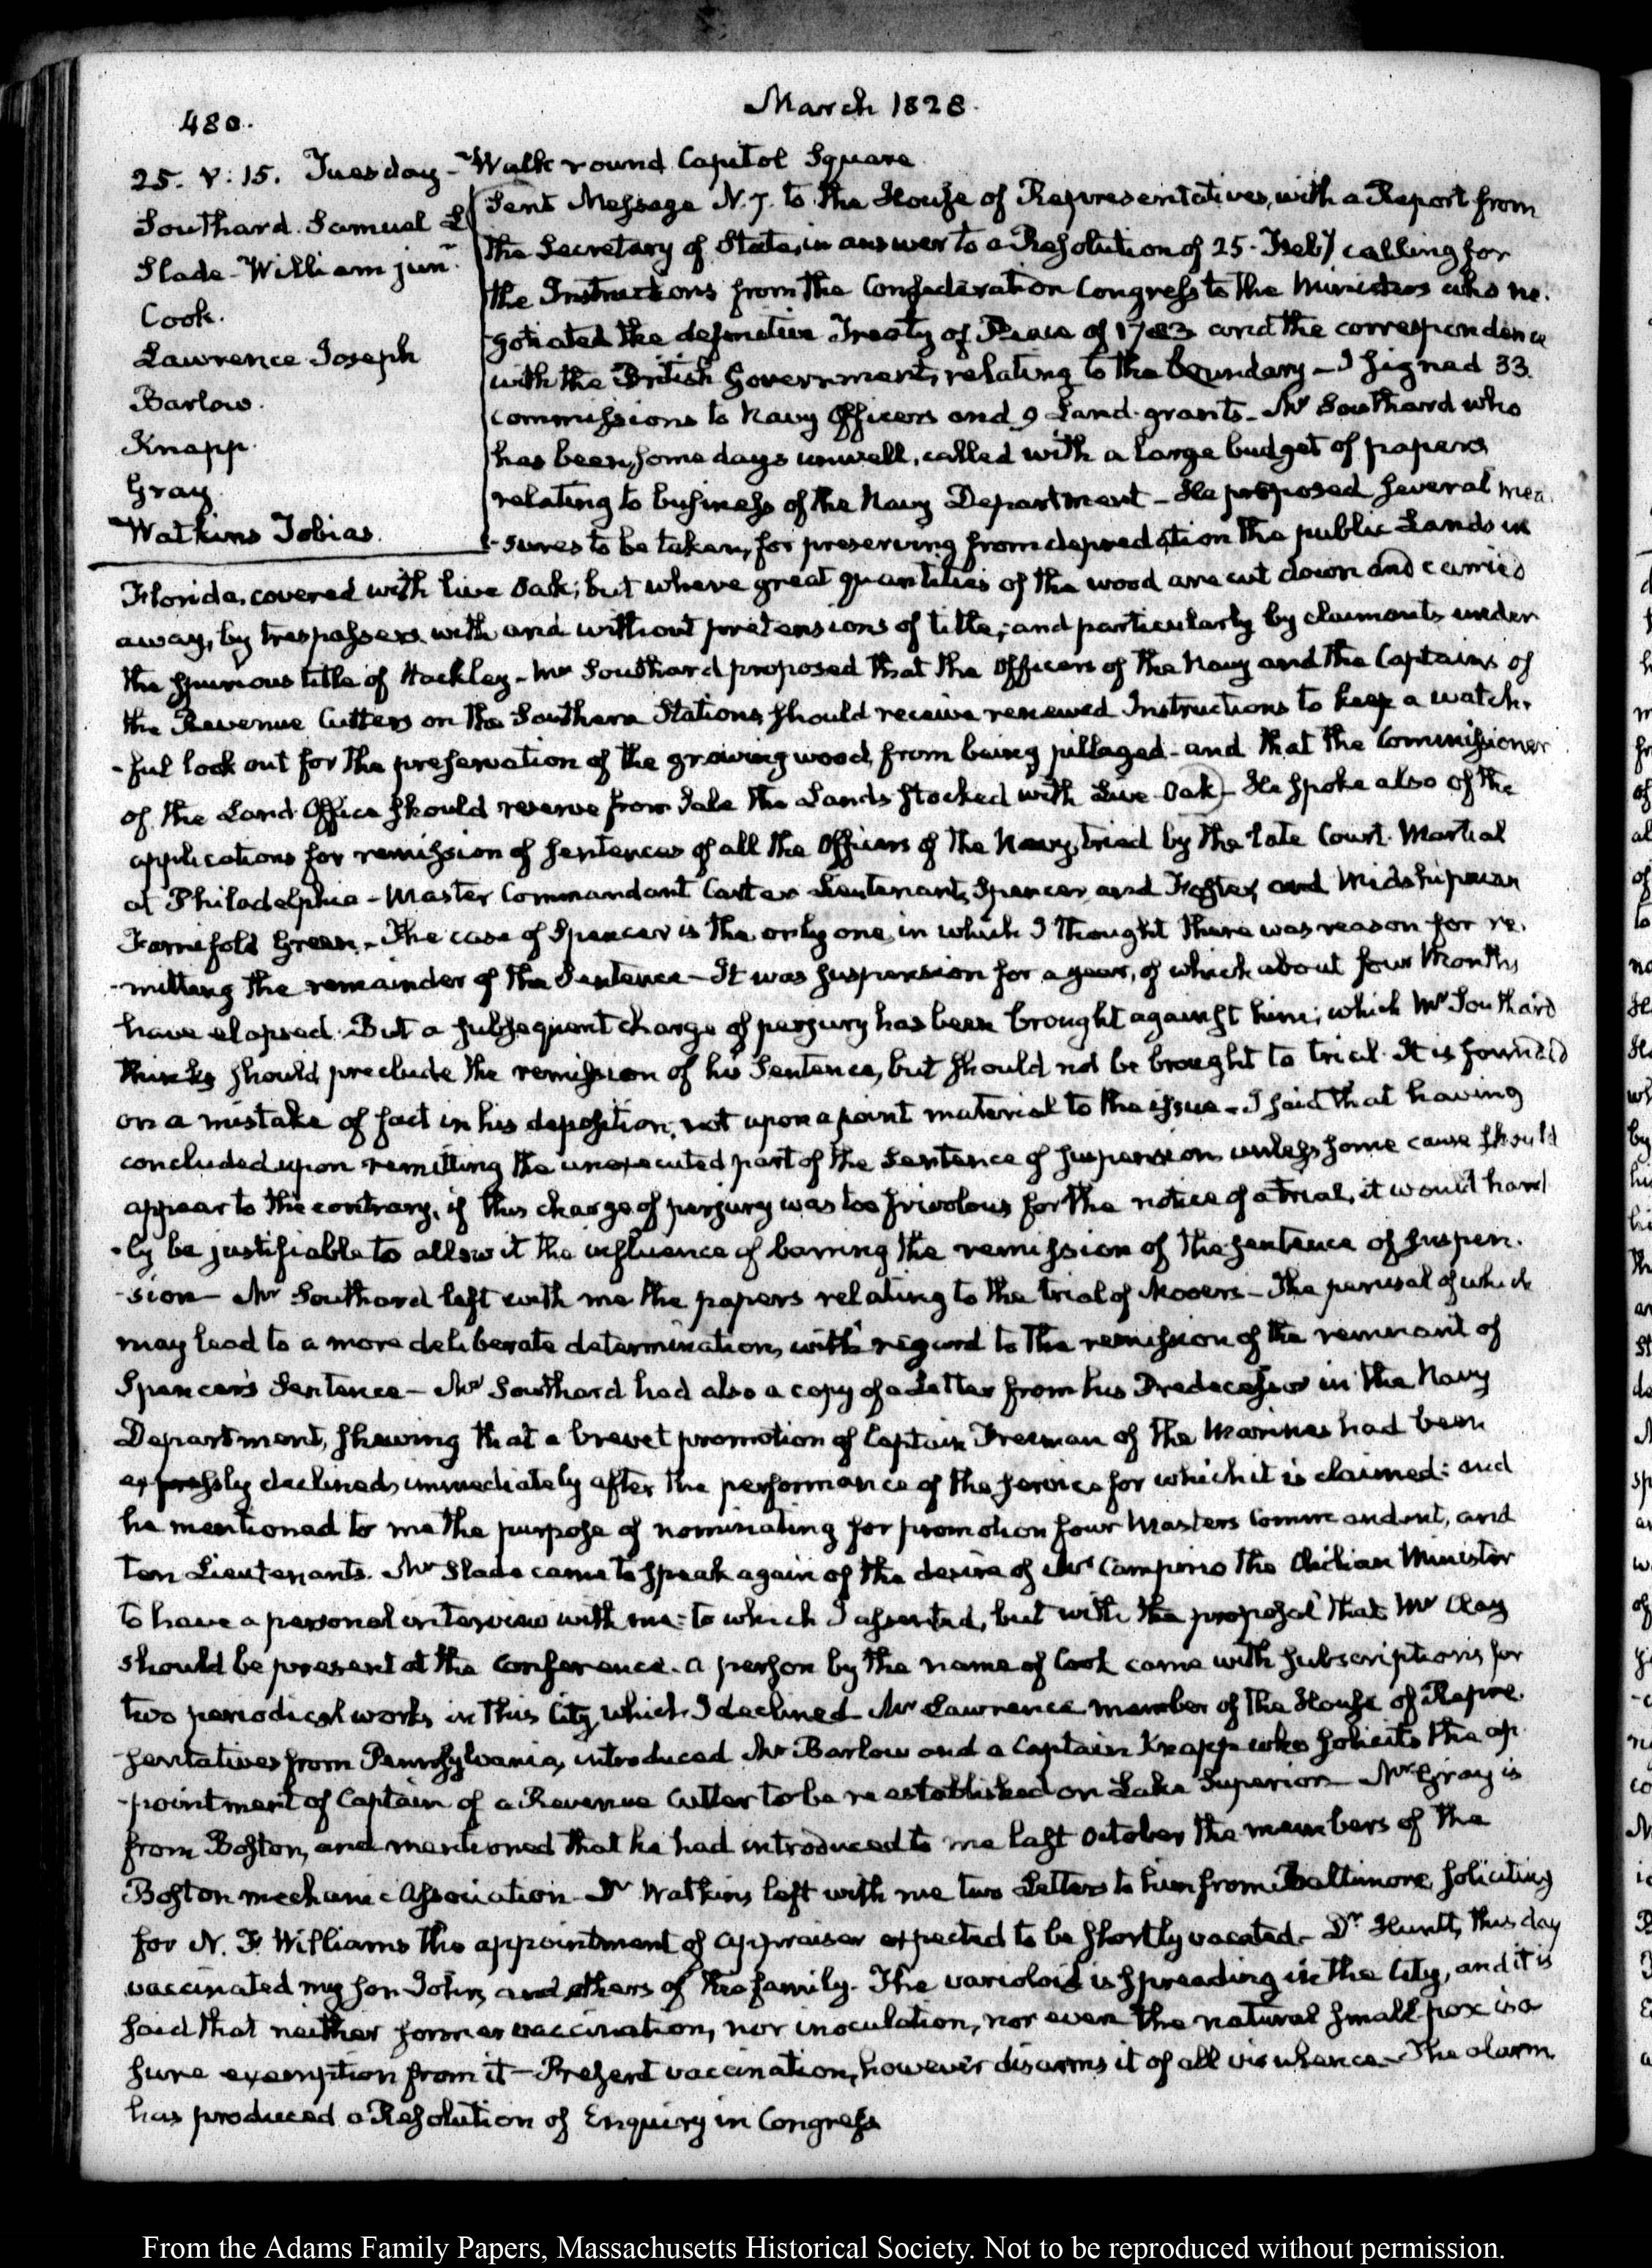 480.
March 1828.
25. V:15. Tuesday - Walk round Capitol Square
Southard. Samuel L
Slade - William junr.
Cook.
Lawrence Joseph
Barlow.
Knapp.
Gray.
Watkins Tobias.
Sent Message N. 7. to the House of Representatives, with a Report from
the Secretary of State, in answer to a Resolution of 25. Feby calling for
the Instructions from the Confederation Congress to the Ministers who ne-
-gotiated the definitive Treaty of Peace of 1783 and the correspondence
with the British Government, relating to the boundary - I signed 33.
commissions to Navy Officers and 9 Land-grants - Mr Southard who
has been some days unwell, called with a large budget of papers
relating to business of the Navy Department - He proposed several mea-
-sures to be taken, for preserving from depredation the public Lands in
Florida, covered with live Oak; but where great quantities of the wood are cut down and carried
away, by trespassers with and without pretensions of title; and particularly by claimants under
the spurious title of Hackley - Mr Southard proposed that the Officers of the Navy and the Captains of
the Revenue Cutters on the Southern Stations, should receive renewed Instructions to keep a watch-
-ful look out for the preservation of the growing wood, from being pillaged - and that the Commissioner
of the Land Office should reserve from Sale the Lands stocked with Live Oak - He spoke also of the
applications for remission of sentences of all the Officers of the Navy, tried by the late Court-Martial
at Philadelphia - Master Commandant Carter Lieutenants, Spencer, and and Midshipman
Farnifold Green. - The case of Spencer is the only one, in which I thought there was reason for re-
-mitting the remainder of the Sentence - It was suspension for a year, of which about four Months
have elapsed. But a subsequent charge of perjury has been brought against him; which Mr Southard
thinks should preclude the remission of his Sentence, but should not be brought to trial. It is founded
on a mistake of fact in his deposition, not upon a point material to the issue - I said that having
concluded upon remitting the unexecuted part of the Sentence of suspension, unless some cause should
appear to the contrary, if this charge of perjury was too frivolous for the notice of a trial, it would hard
-ly be justifiable to allow it the influence of barring the remission of the sentence of suspen-
-sion - Mr Southard left with me the papers relating to the trial of Moores - The perusal of which
may lead to a more deliberate determination, with regard to the remission of the remnant of
Spencer's Sentence - Mr Southard had also a copy of a Letter from his Predecessor in the Navy
Department, shewing that a brevet promotion of Captain Freeman of the Marines had been
expressly declined, immediately after the performance of the service for which it is claimed: and
he mentioned to me the purpose of nominating for promotion four Masters Commandant, and
ten Lieutenants. Mr Slade came to speak again of the desire of Mr Campino the Chilian Minister
to have a personal interview with me: to which I assented, but with the proposal that Mr Clay
should be present at the Conference. A person by the name of Cook came with subscriptions for
two periodical works in this City, which I declined. Mr Lawrence member of the House of Repre-
-sentatives from Pennsylvania, introduced Mr Barlow and a Captain Knapp who solicits the ap-
-pointment of Captain of a Revenue Cutter to be reestablished on Lake Superior - Mr Gray is
from Boston, and mentioned that he had introduced to me last October the members of the
Boston mechanic Association - Dr Watkins left with me two Letters to him from Baltimore, soliciting
for N. F. Williams the appointment of Appraiser expected to be shortly vacated - Dr Huntt, this day
vaccinated my son John, and others of the family. The varioloid is spreading in the City, and it is
said that neither former vaccination, nor inoculation, nor even the natural small-pox is a
sure exemption from it - Present vaccination, however disarms it of all virulence - The alarm
has produced a Resolution of Enquiry in Congress
From the Adams Family Papers, Massachusetts Historical Society. Not to be reproduced without permission.